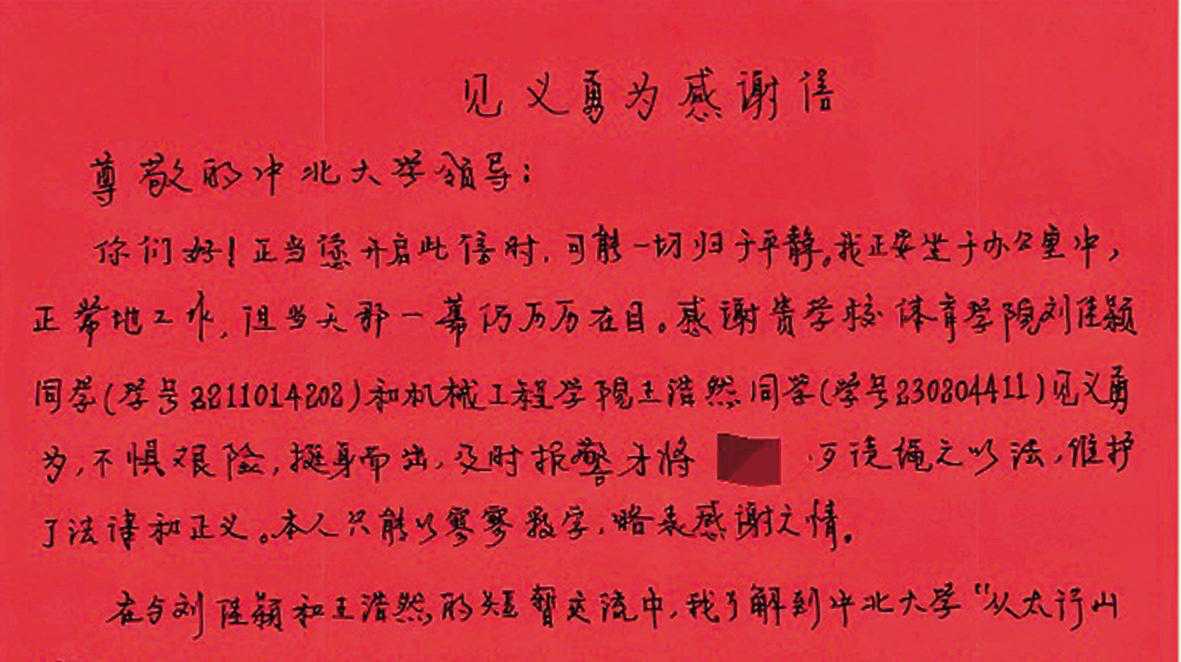 见义勇为感谢信
尊敬的中北大学领导：
你们好！正当您开启此信时，可能一切归于平静，我正安坐于办公室中，
正常地工作，但当天那一幕仍历历在目。感谢贵学校体育学院刘佳颖
同学（学号2211014202）和机械工程学院王浩然同学（学号230204411）见义勇
为，不惧艰险，挺身而出，及时报警才将 歹徒绳之以法，维护
了法律和正义。本人只能以寥寥数字，略表感谢之情。
在与刘佳颖和王浩然的短暂交流中，我了解到中北大学“从太行山